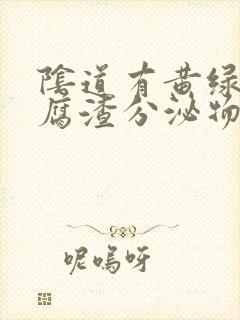 陰道有黄绿
腐渣分泌物
呢嗚呀